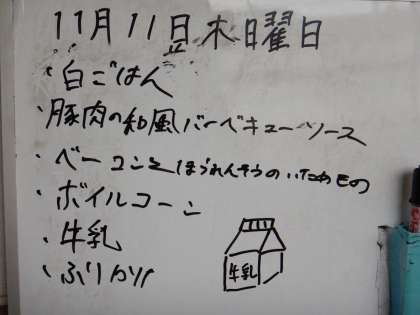 11月11日木曜日
・白ごはん
・豚肉の和風バーベキューソース
・ベーコンとほうれんそうのいためもの
・ボイルコーン
・牛乳
・ふりかけ
牛乳